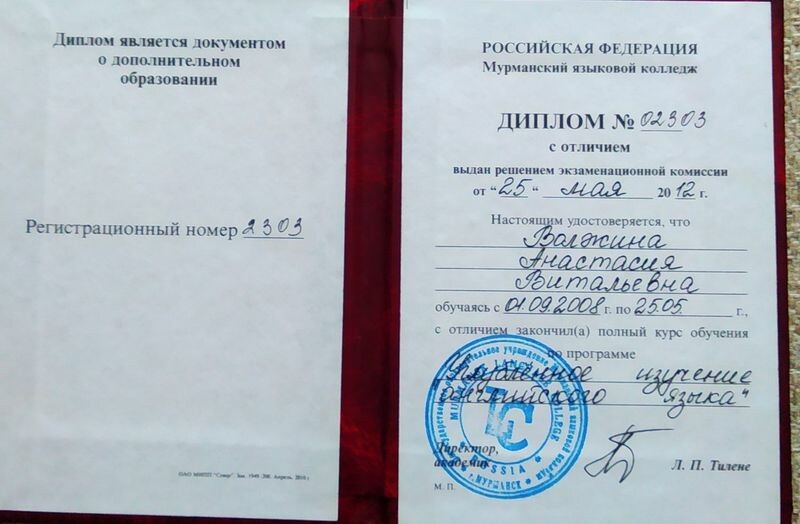 Диплом является документом
о дополнительном
образовании
Регистрационный номер 2303
ОАО МИПП "Север". Зак. 1949 .200. Апрель, 2010 г.
РОССИЙСКАЯ ФЕДЕРАЦИЯ
Мурманский языковой колледж
ДИПЛОМ № 02303
с отличием
выдан решением экзаменационной комиссии
от "25" мая 2012 г.
Настоящим удостоверяется, что
Волжина
Анастасия
Витальевна
обучаясь с 01.09.2008 г. по 25.05. г.,
с отличием закончил(а) полный курс обучения
по программе
"Углубленное изучение
английского языка"
LANGUAGE COLLEGE
RUSSIA
г. МУРМАНСК
Директор,
академик
Л. П. Тилене
М. П.